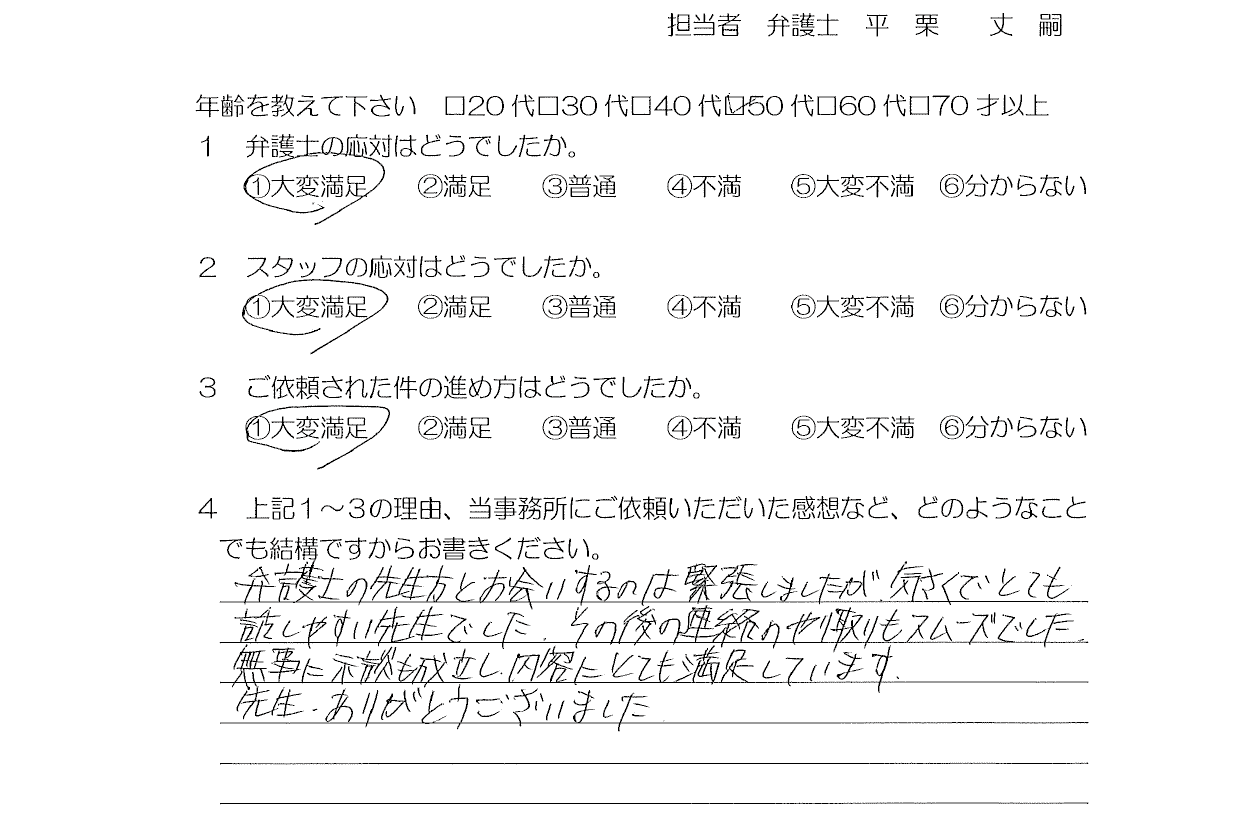 担当者　弁護士　平　栗　　丈　嗣
年齢を教えて下さい　□20代□30代□40代☑50代□60代□70才以上
１　弁護士の応対はどうでしたか。
①大変満足　②満足　③普通　④不満　⑤大変不満　⑥分からない
２　スタッフの応対はどうでしたか。
①大変満足　②満足　③普通　④不満　⑤大変不満　⑥分からない
３　ご依頼された件の進め方はどうでしたか。
①大変満足　②満足　③普通　④不満　⑤大変不満　⑥分からない
４　上記１～３の理由、当事務所にご依頼いただいた感想など、どのようなこと
でも結構ですからお書きください。
弁護士の先生方とお会いするのは緊張しましたが 気さくでとても
話しやすい先生でした. その後の連絡のやり取りもスムーズでした.
無事に示談も成立し.内容にとても満足しています.
先生.ありがとうございました